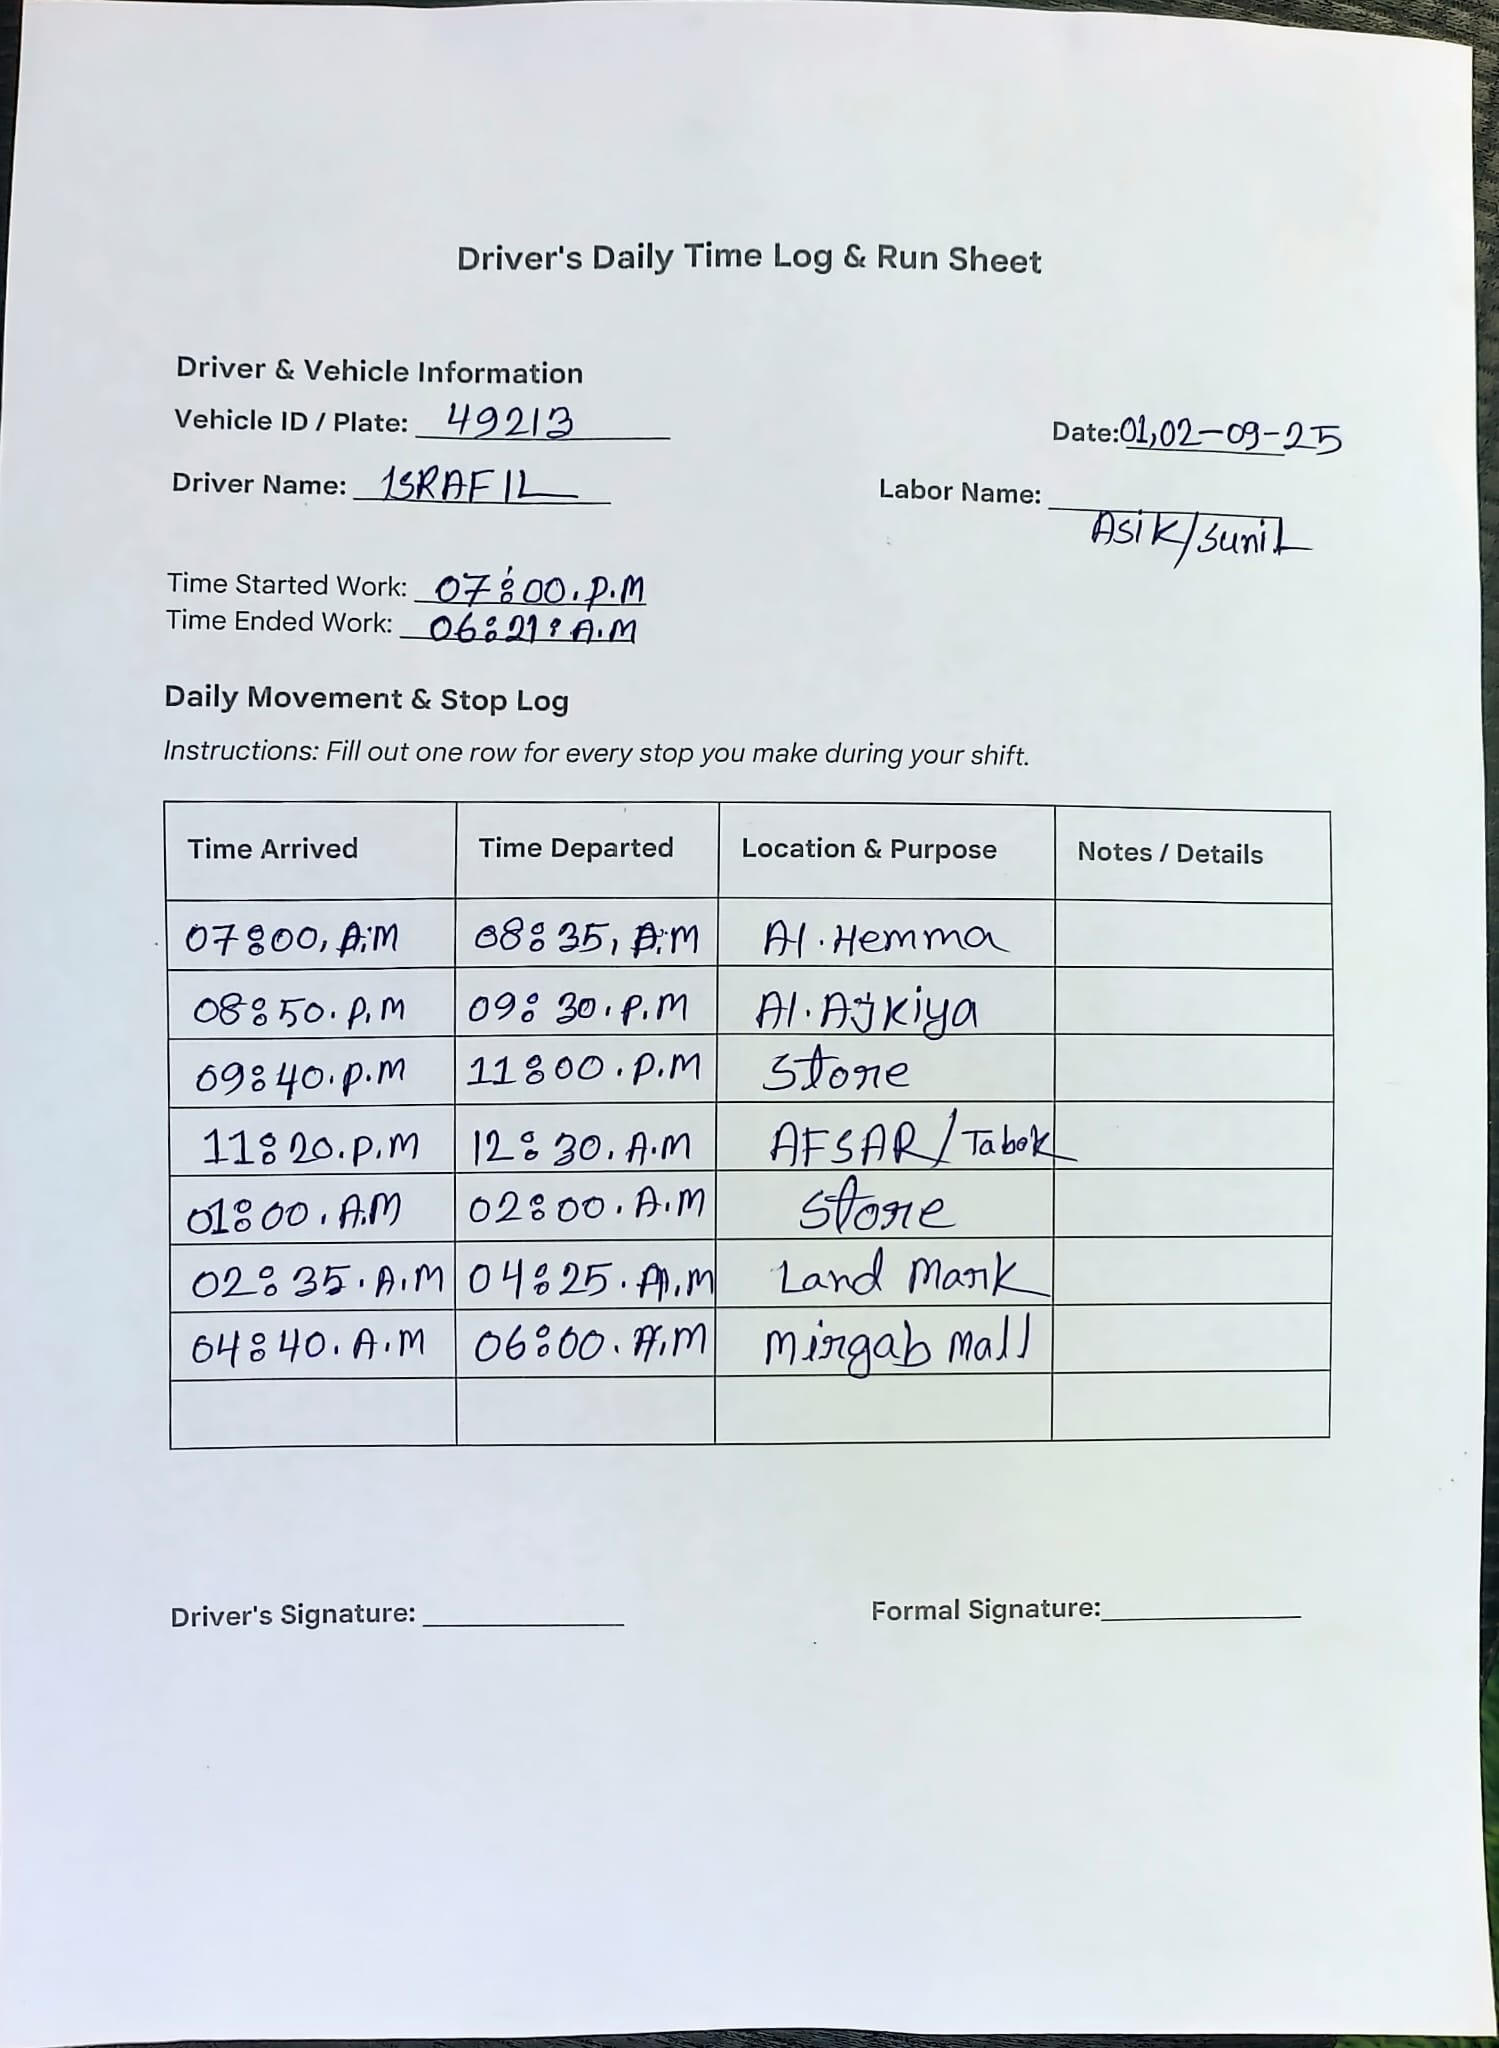 Driver's Daily Time Log & Run Sheet
Driver & Vehicle Information
Vehicle ID / Plate: 49213
Date: 01,02-09-25
Driver Name: ISRAFIL
Labor Name: Asik/Sunil
Time Started Work: 07:00.P.M
Time Ended Work: 06:21: A.M
Daily Movement & Stop Log
Instructions: Fill out one row for every stop you make during your shift.
Time Arrived Time Departed Location & Purpose Notes / Details
07:00, A.M 08:35, A.M Al.Hemma
08:50.P.M 09:30.P.M Al.Ajkiya
09:40.p.m 11:00.P.M Store
11:20.P.M 12:30.A.M AFSAR/Tabok
01:00.A.M 02:00.A.M Store
02:35.A.M 04:25.A.M Land Mark
04:40.A.M 06:00.A.M Mirgab Mall
Driver's Signature:
Formal Signature: